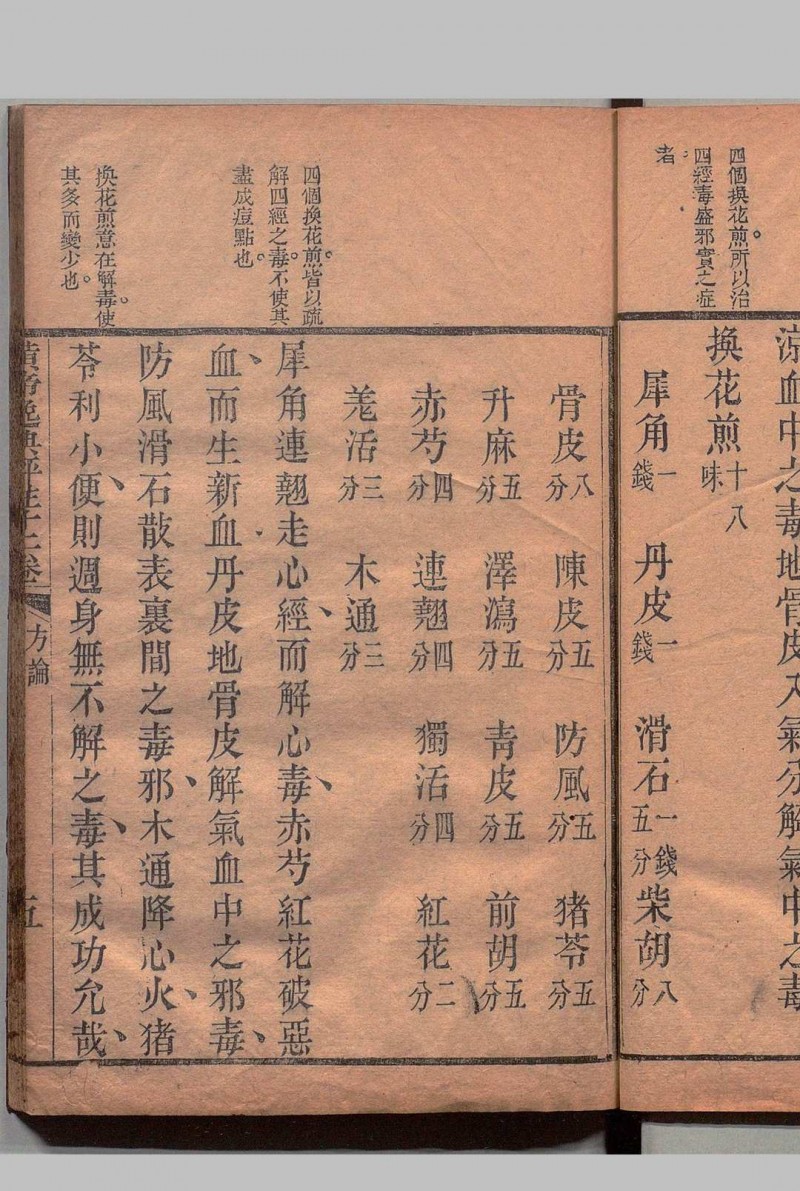 四個換花煎。所以治
四經毒盛邪實之症
者。
涼血中之毒地骨皮入氣分解氣中之毒
換花煎十八味
犀角一錢 丹皮一錢 滑石一錢五分 柴胡八分
四個換花煎。皆以疏
解四經之毒。不使其
盡成痘點也。
換花煎意在解毒。使
其多而變少也。
骨皮八分 陳皮五分 防風五分 猪苓五分
升麻五分 澤瀉五分 青皮五分 前胡五分
赤芍四分 連翹四分 獨活四分 紅花二分
羗活三分 木通三分
犀角連翹走心經、而解心毒、赤芍紅花破惡
血、而生新血丹皮地骨皮解氣血中之邪毒、
防風滑石散表裏間之毒邪、木通降心火、猪
苓利小便、則週身無不解之毒、其成功允哉、
方論
五